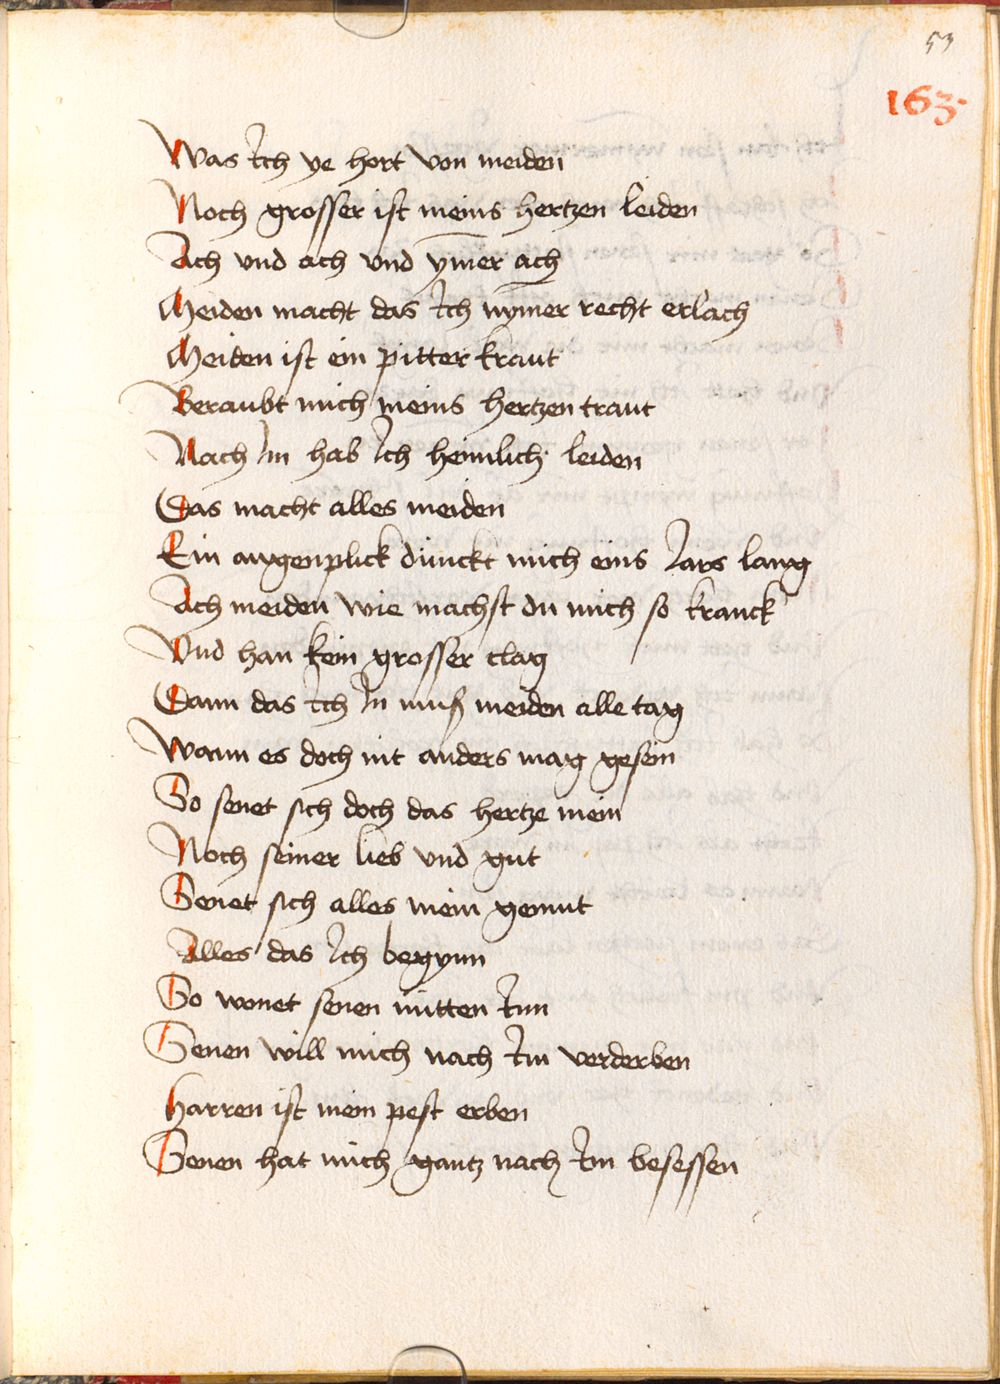 53
163·
Was Ich ye hort von meiden
Noch grosser ist meins hertzen leiden
Ach vnd ach vnd ym̄er ach
Meiden macht das Ich nym̄er recht erlach
Meiden ist ein pitter kraut
Beraubt mich meins hertzen traut
Nach Im hab Ich heimlich leiden
Das macht alles meiden
Ein augenplick dunckt mich eins Jars lang
Ach meiden wie machst du mich so kranck
Vnd han kein grosser clag
Dann das Ich In muß meiden alle tag
Wann es doch nit anders mag gesein
So senet sich doch das hertze mein
Noch seiner lieb vnd gut
Senet sich alles mein gemut
Alles das Ich begynn
So wonet senen mitten Inn
Senen will mich nach Im verderben
Harren ist mein pest erben
Senen hat mich gantz nach Im besessen